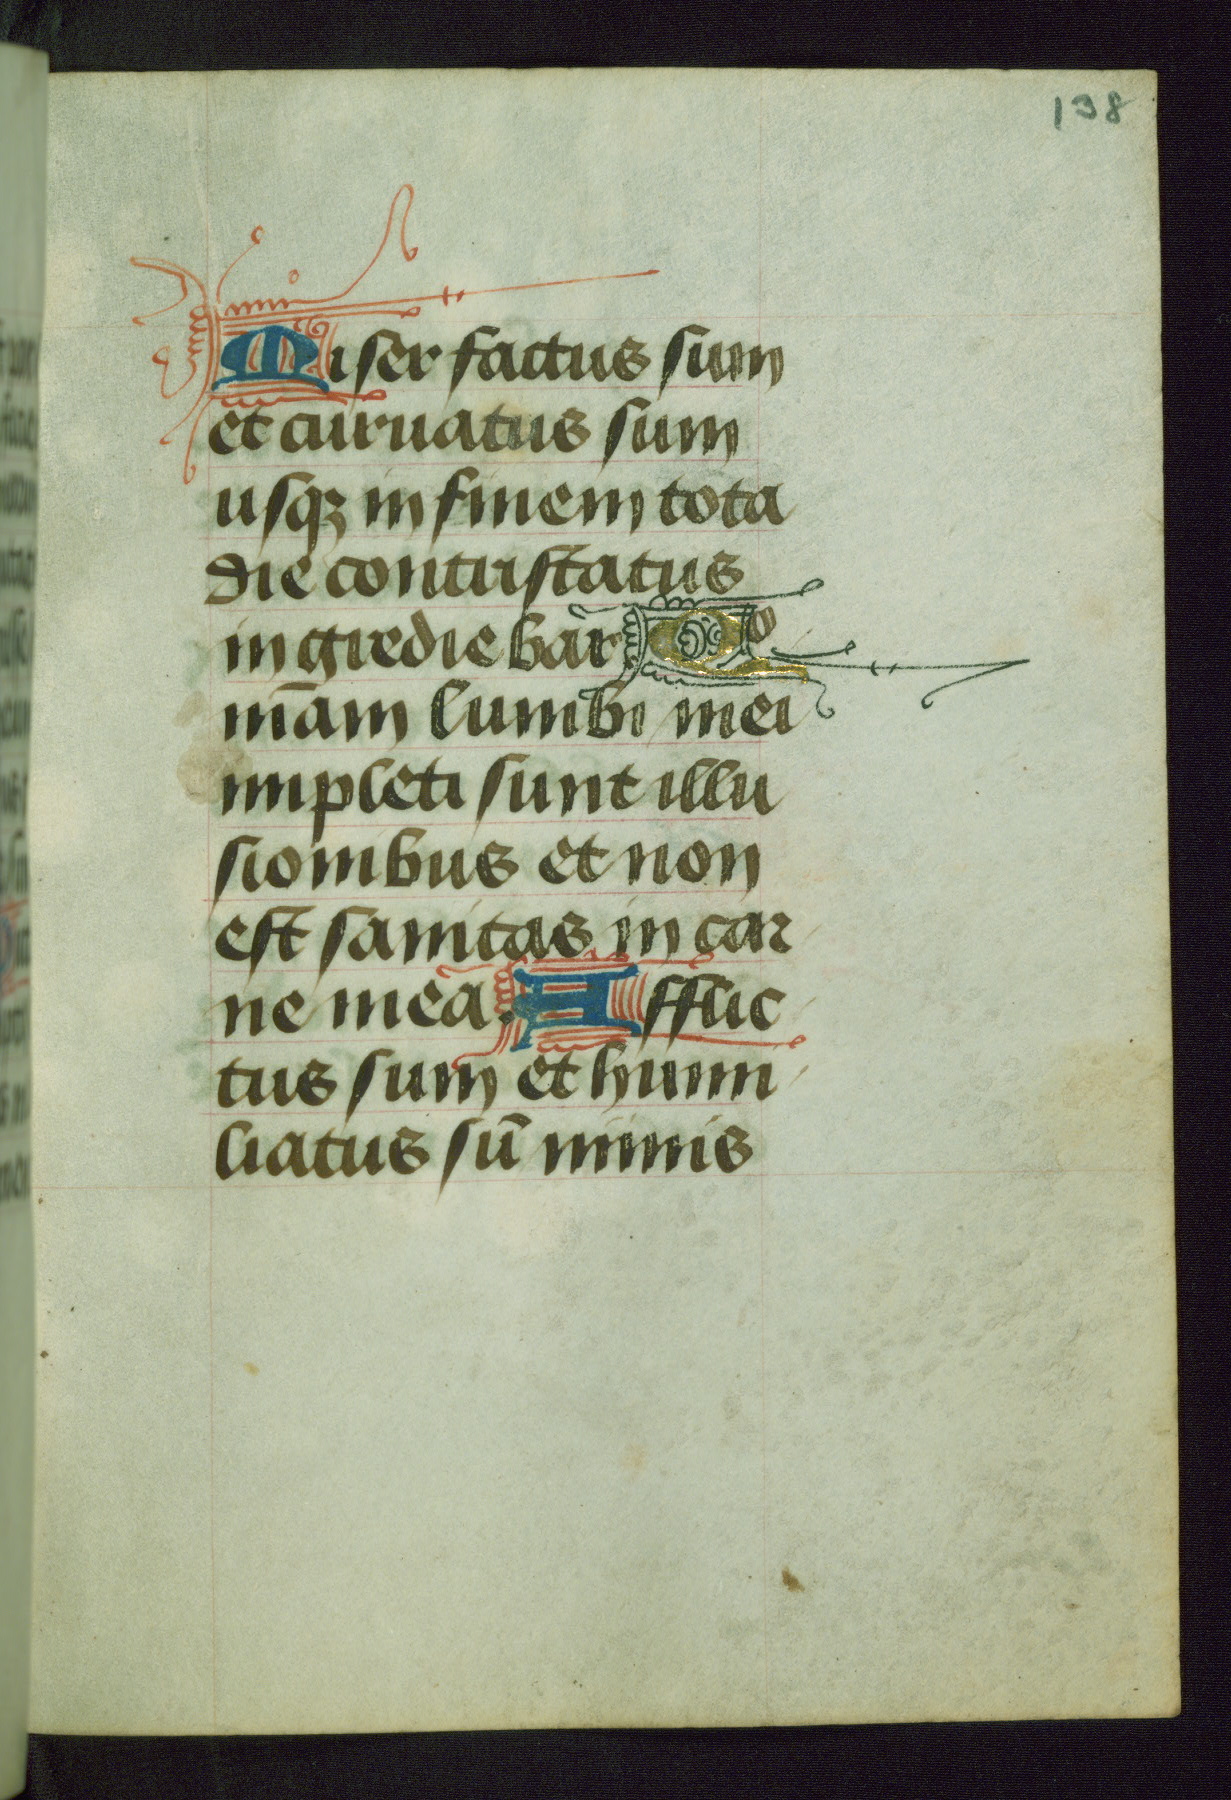 138
Miser factus sum
et curuatus sum
usqꝫ in finem tota
die contristatus
ingrediebar Qo
niam lumbi mei
impleti sunt illu
sionibus et non
est sanitas in car
ne mea. Afflic
tus sum et humi
liatus sū nimis